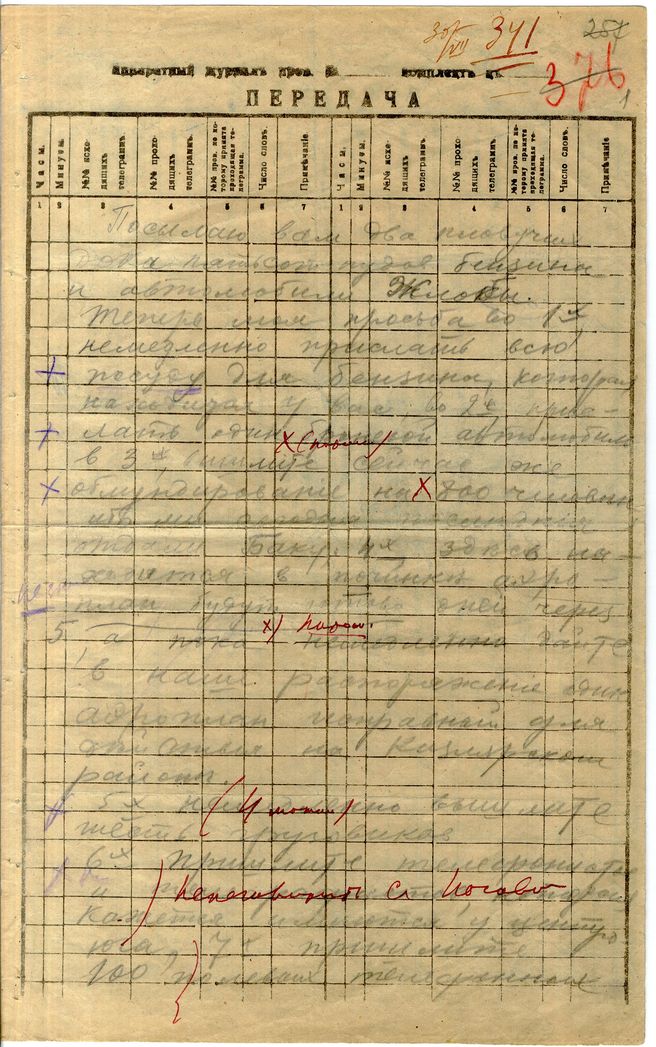 30/VII 341
257
376
1
Аппаратный журналъ пров. № комплектъ
ПЕРЕДАЧА
Часы. Минуты. №№ исходящихъ телеграммъ №№ проходящихъ телеграммъ №№ пров. по которому принята проходящая телеграмма Число словъ. Примѣчаніе Часы. Минуты. №№ исходящихъ телеграммъ №№ проходящихъ телеграммъ №№ пров. по которому принята проходящая телеграмма. Число словъ. Примѣчаніе
1 2 3 4 5 6 7 1 2 3 4 5 6 7
Посылаю вам два пловучих
дока пятьсот пудов бензина
и автомобили Жлобы.
Теперь моя просьба во 1х,
немедленно прислать всю
посуду для бензина, которая
находится у вас, во 2х присы-
лать один автомобиль
в 3х, вышлите сейчас же
обмундирование на 800 человек
отдали Баку. 4х здесь на-
ходится в починке аэро-
план будут дней через
5, а пока немедленно дайте
в наше распоряжение один
аэроплан исправный для
действия на Кизлярском
районе.
5х немедленно вышлите
(4 )
шесть грузовиков
6х Пришлите телефонистов
и которые
Переговорить с
кажется имеются у центро
юга, 7х пришлите
100 полевых телефонных